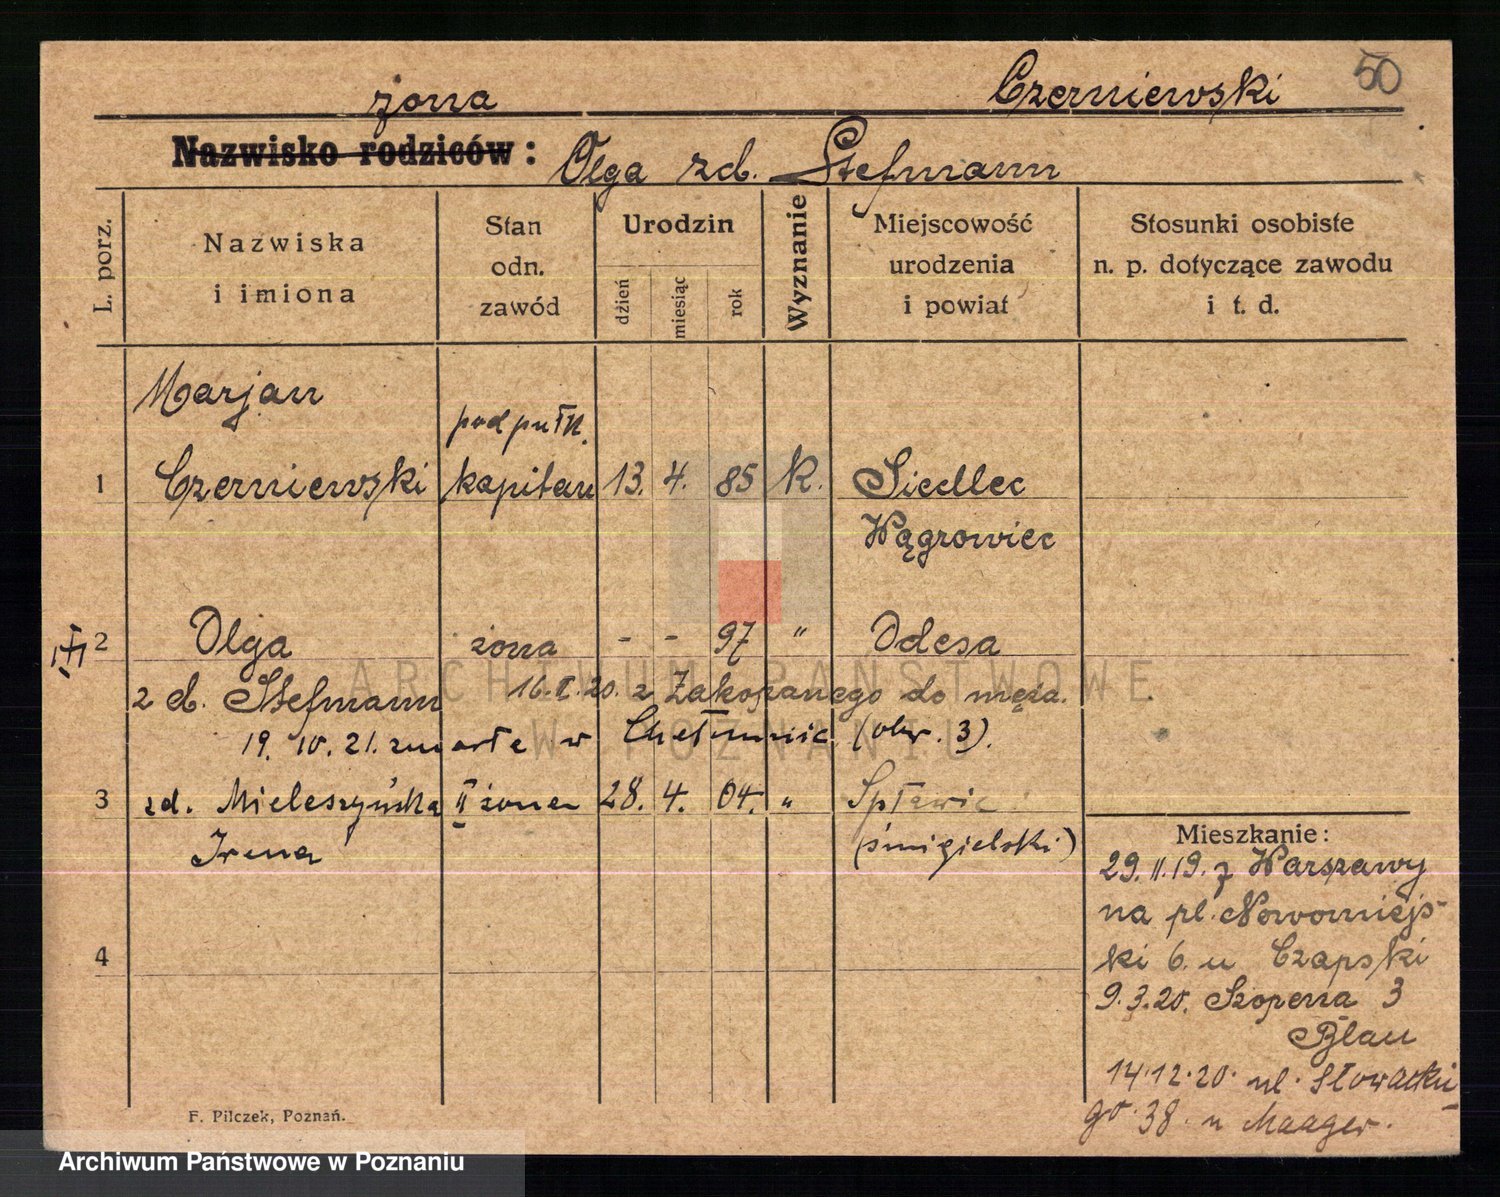 50
żona Czerniewski
Nazwisko rodziców: Olga zd. Stefmann
L. porz.
Nazwiska
i imiona
Stan
odn.
zawód
Urodzin
dzień
miesiąc
rok
Wyznanie
Miejscowość
urodzenia
i powiat
Stosunki osobiste
n. p. dotyczące zawodu
i t. d.
Marjan
podpułk.
1 Czerniewski kapitan 13. 4. 85 k. Siedlec
Wągrowiec
2 Olga żona - - 97 " Odesa
z d. Stefmann 16.I.20. z Zakopanego do męża.
19. 10. 21. zmarła w Chełmnie (obw. 3).
3 zd. Mieleszyńska II żona 28. 4. 04. " Spławie
Irena (śmigielski)
4
Mieszkanie:
29.II.19. z Warszawy
na pl. Nowomiejs-
ki 6. u Czapski
9.3.20. Szopena 3
Blau
14.12.20. ul. Słowackie-
go 38. u Maager.
F. Pilczek, Poznań.
ARCHIWUM PAŃSTWOWE
W POZNANIU
Archiwum Państwowe w Poznaniu